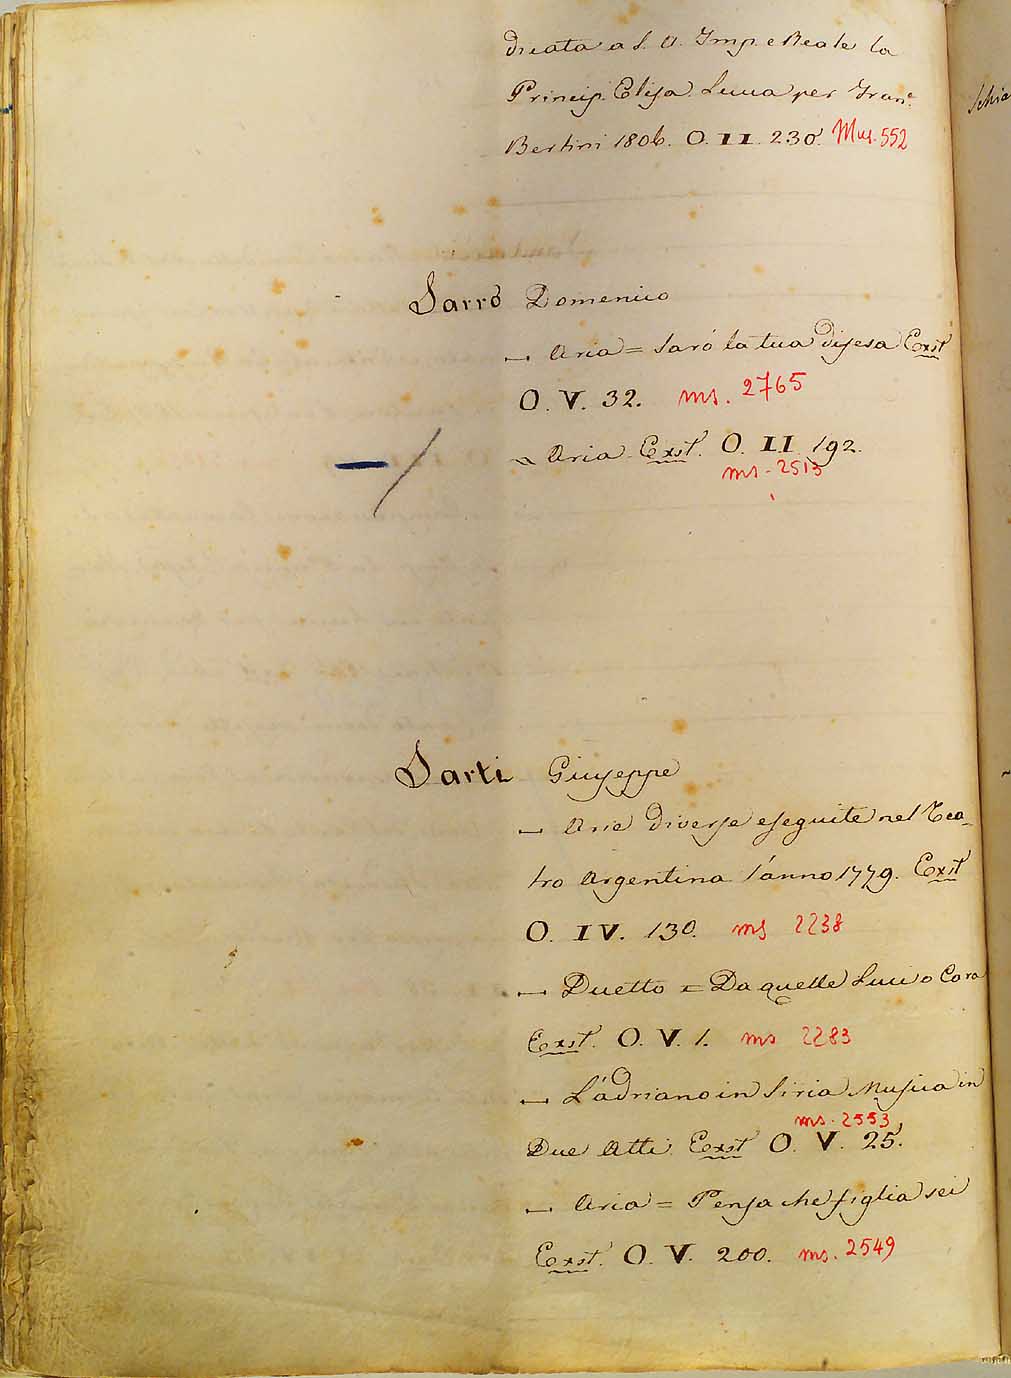 dicata a S. A. Imp. e Reale la
Princip. Elisa Lucca per Franc.
Bertini 1806. O. II. 230. Mus. 552
Schia
Sarrò Domenico
— Aria = Sarò la tua difesa Exst
O. V. 32. ms. 2765
— Aria Exst. O. II. 192.
ms. 2513
Sarti Giuseppe
— Arie diverse eseguite nel Tea-
tro Argentina l'anno 1779. Exst
O. IV. 130. ms 2238
— Duetto = Da quelle Luci o Cara
Exst. O. V. 1. ms 2283
— L'adriano in Siria Musica in
ms. 2553
Due Atti Exst O. V. 25.
— Aria = Pensa che figlia sei
Exst. O. V. 200. ms. 2549